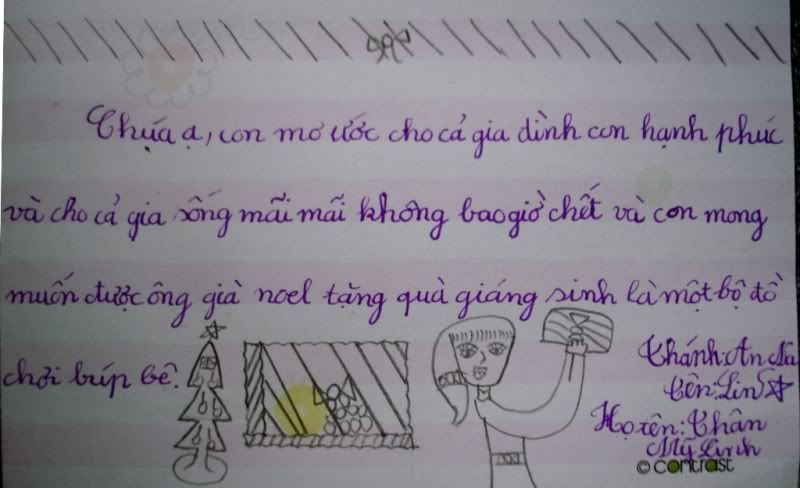 Chúa ạ, con mơ ước cho cả gia dình con hạnh phúc
và cho cả gia sống mãi mãi không bao giờ chết và con mong
muốn được ông già noel tặng quà giáng sinh là một bộ đồ
chơi búp bê.
Thánh: An Na
tên: Linh
Họ tên: Thân
Mỹ Linh
© contrast